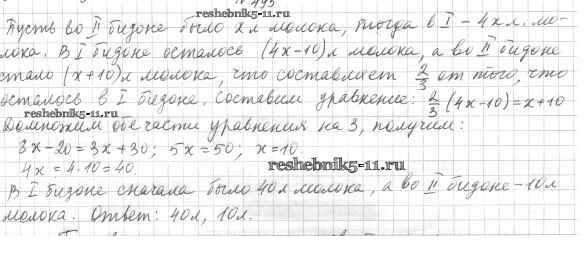 № 495
Пусть во II бидоне было х л молока, тогда в I – 4х л. мо-
лока. В I бидоне осталось (4х-10) л молока, а во II бидоне
стало (х+10) л молока, что составляет 2/3 от того, что
осталось в I бидоне. Составим уравнение: 2/3 (4х-10) = х+10
Домножим обе части уравнения на 3, получим:
8х-20 = 3х+30; 5х = 50; х = 10.
4х = 4·10 = 40.
В I бидоне сначала было 40 л молока, а во II бидоне – 10 л
молока. Ответ: 40 л, 10 л.
reshebnik5-11.ru
reshebnik5-11.ru